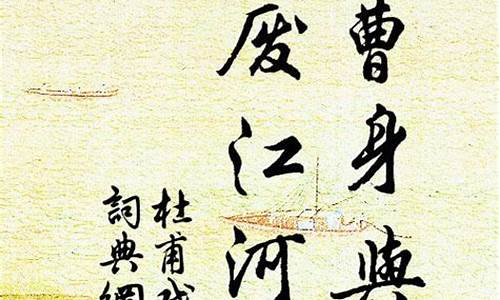 曹身與
废江河
杜甫
詞典網